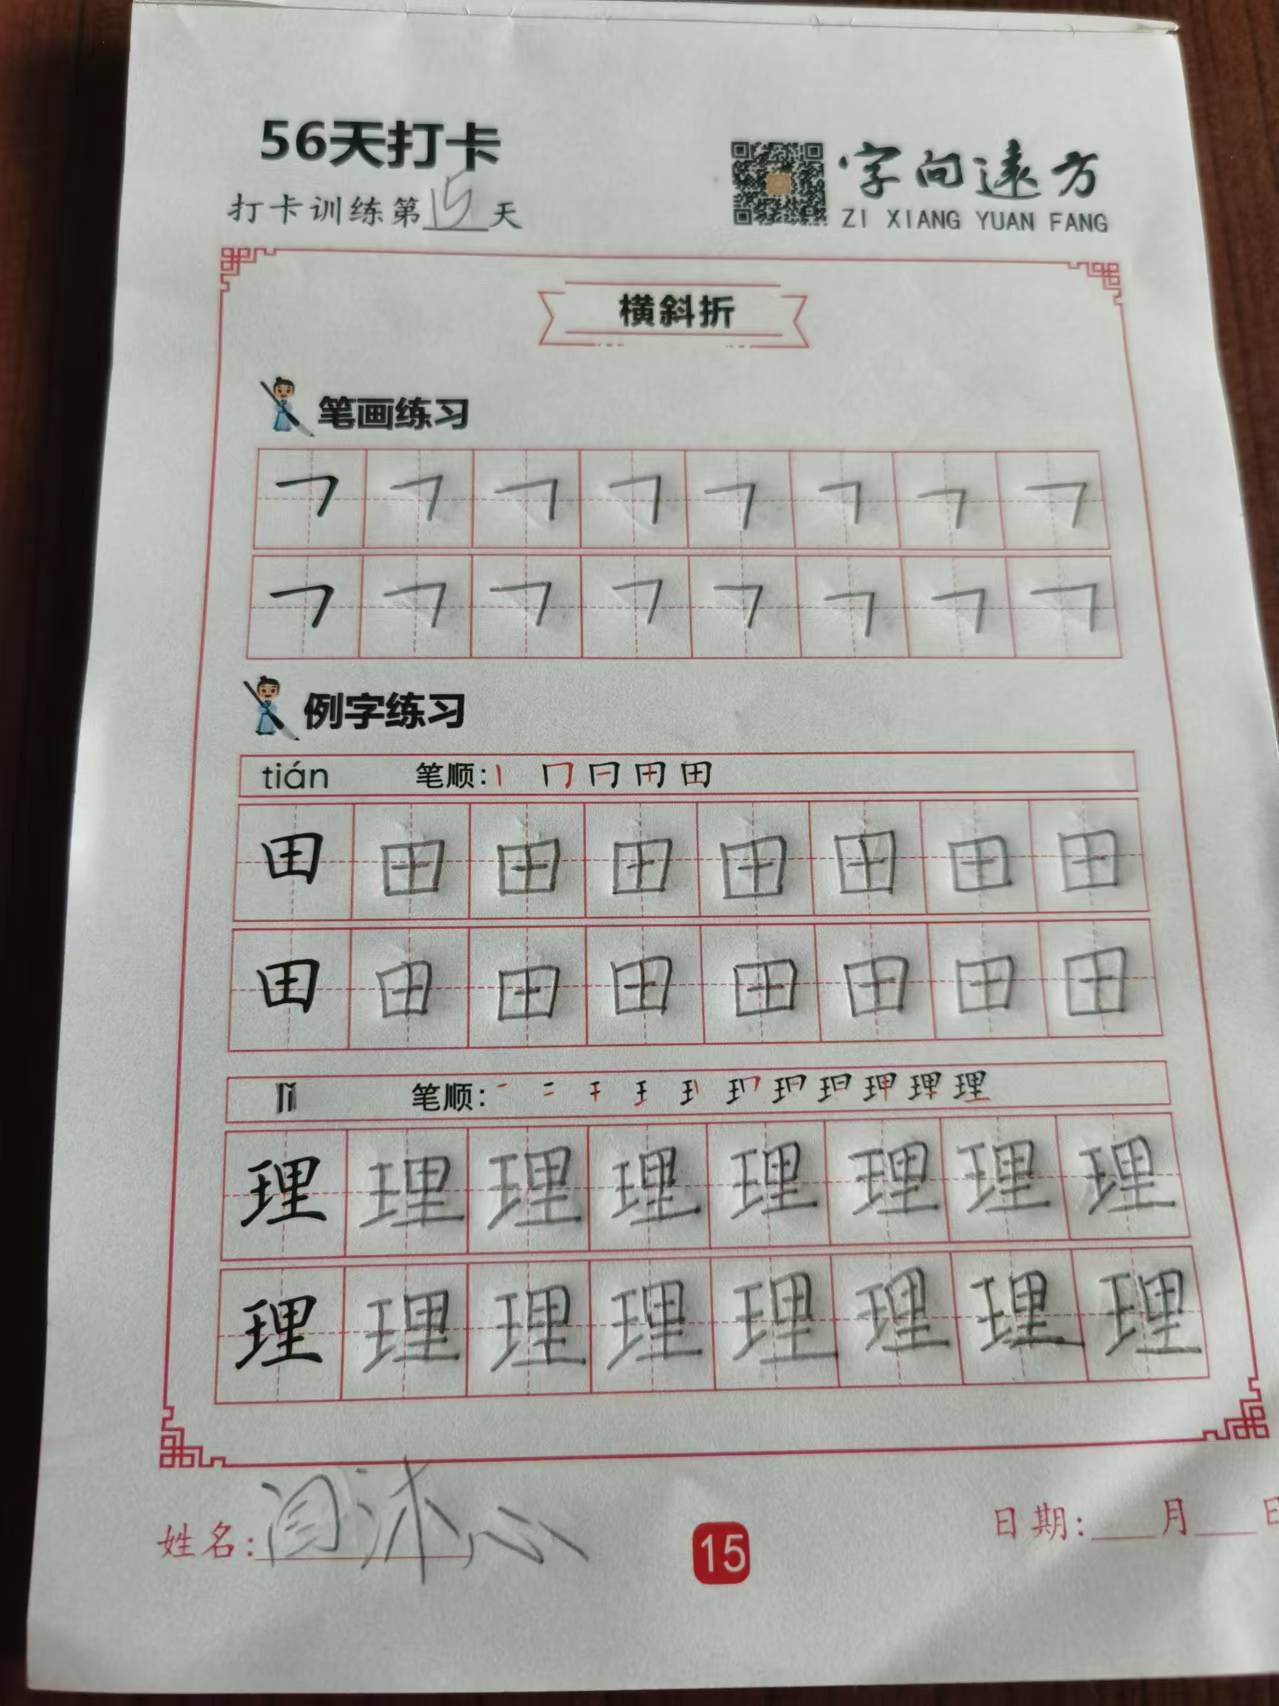 56天打卡
打卡训练第15天
字向遠方
ZI XIANG YUAN FANG
横斜折
笔画练习
例字练习
tián 笔顺:
田 田 田 田 田 田 田 田
田 田 田 田 田 田 田 田
lǐ 笔顺:
理 理 理 理 理 理 理 理
理 理 理 理 理 理 理 理
姓名:闫沐心
15
日期:___月___日